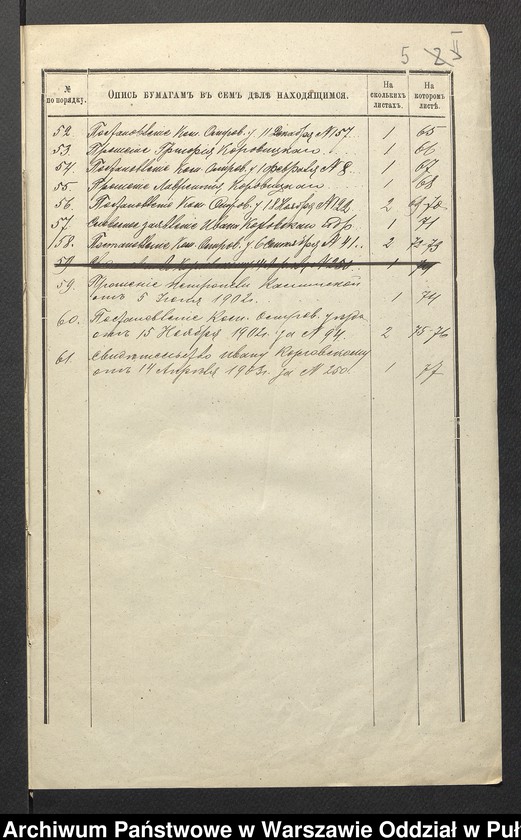 5 2 II
№ по порядку. Опись бумагамъ въ семъ дѣлѣ находящимся. На сколькихъ листахъ. На которомъ листѣ.
52. Постановленіе Ком. Остров. у. 11 Декабря № 157. 1 65
53. Прошеніе Григорія Коровицкаго 1 66
54. Постановленіе Ком. Остров. у. 1 февраля № 8. 1 67
55. Прошеніе Лаврентія Коровицкаго 1 68
56. Постановленіе Ком. Остров. у. 18 Ноября № 122. 2 69-70.
57. Словесное заявленіе Ивана 1 71
58. Постановленіе Ком. Остров. у. 6 Сентября № 41. 2 72-73
59. 1 74
59. Прошеніе
отъ 5 Іюля 1902г. 1 74
60. Постановленіе Ком. Остров. уѣзда
отъ 15 Ноября 1902г. за № 94. 2 75-76
61. Свидѣтельство Ивану Коровскому
отъ 14 Апрѣля 1903г. за № 250. 1 77
Archiwum Państwowe w Warszawie Oddział w Puł